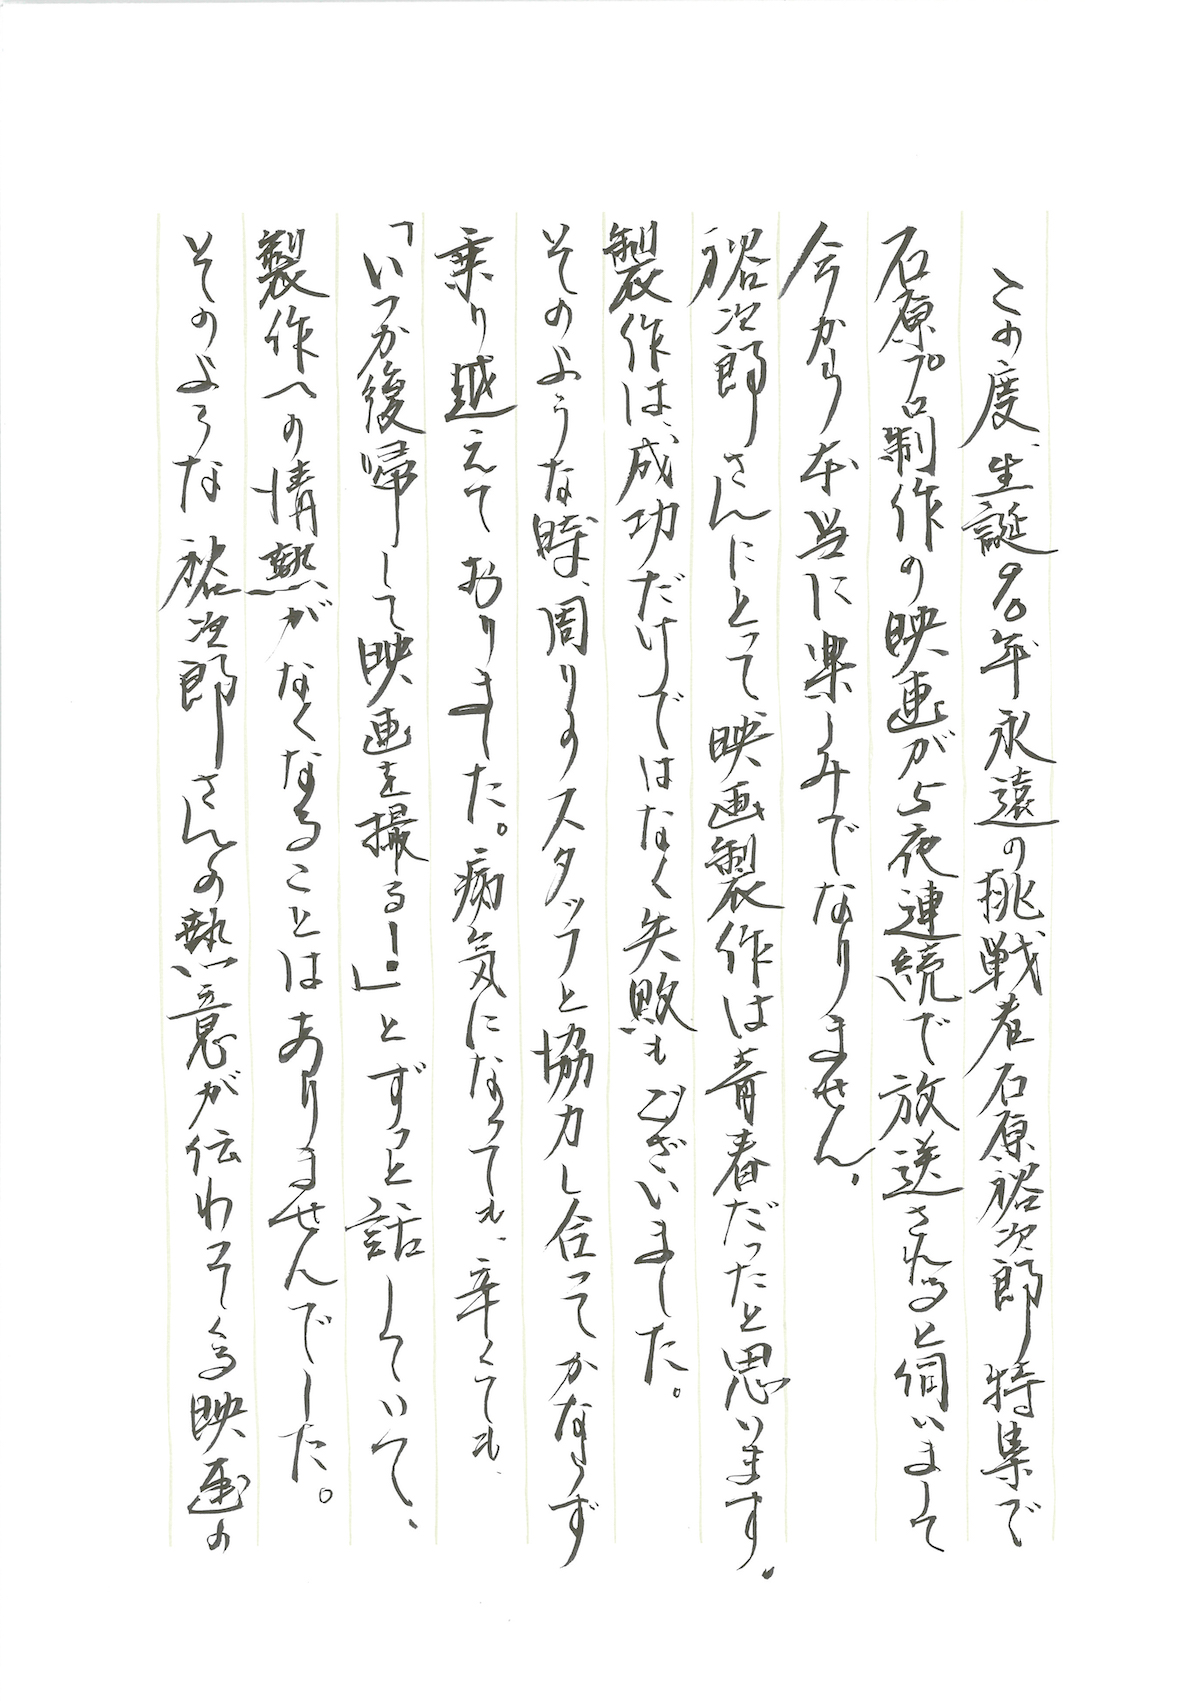 この度、生誕90年永遠の挑戦者石原裕次郎特集で
石原プロ制作の映画が5夜連続で放送されると伺いまして
今から本当に楽しみでなりません。
裕次郎さんにとって、映画製作は青春だったと思います。
製作は、成功だけではなく失敗もございました。
そのような時、周りのスタッフと協力し合ってかならず
乗り越えておりました。病気になっても、辛くても、
「いつか復帰して映画を撮る！」とずっと話していて、
製作への情熱がなくなることはありませんでした。
そのような裕次郎さんの熱意が伝わってくる映画の